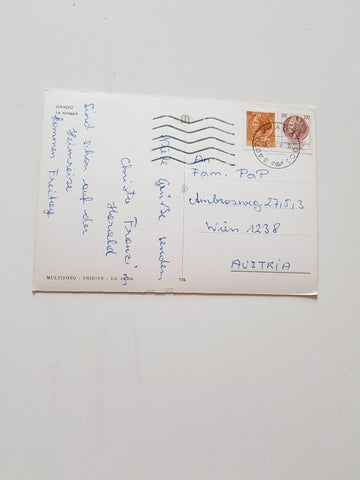 GRADO
La spiaggia
Viele Grüße senden
Christa Franzi &
Harald
Sind schon auf der
Heimreise
kommen Freitag
An
Fam. PaP
Ambrosweg 27,5,3
Wien 1238
AUSTRIA
MULTIFOTO - TRIESTE - Tel.
176